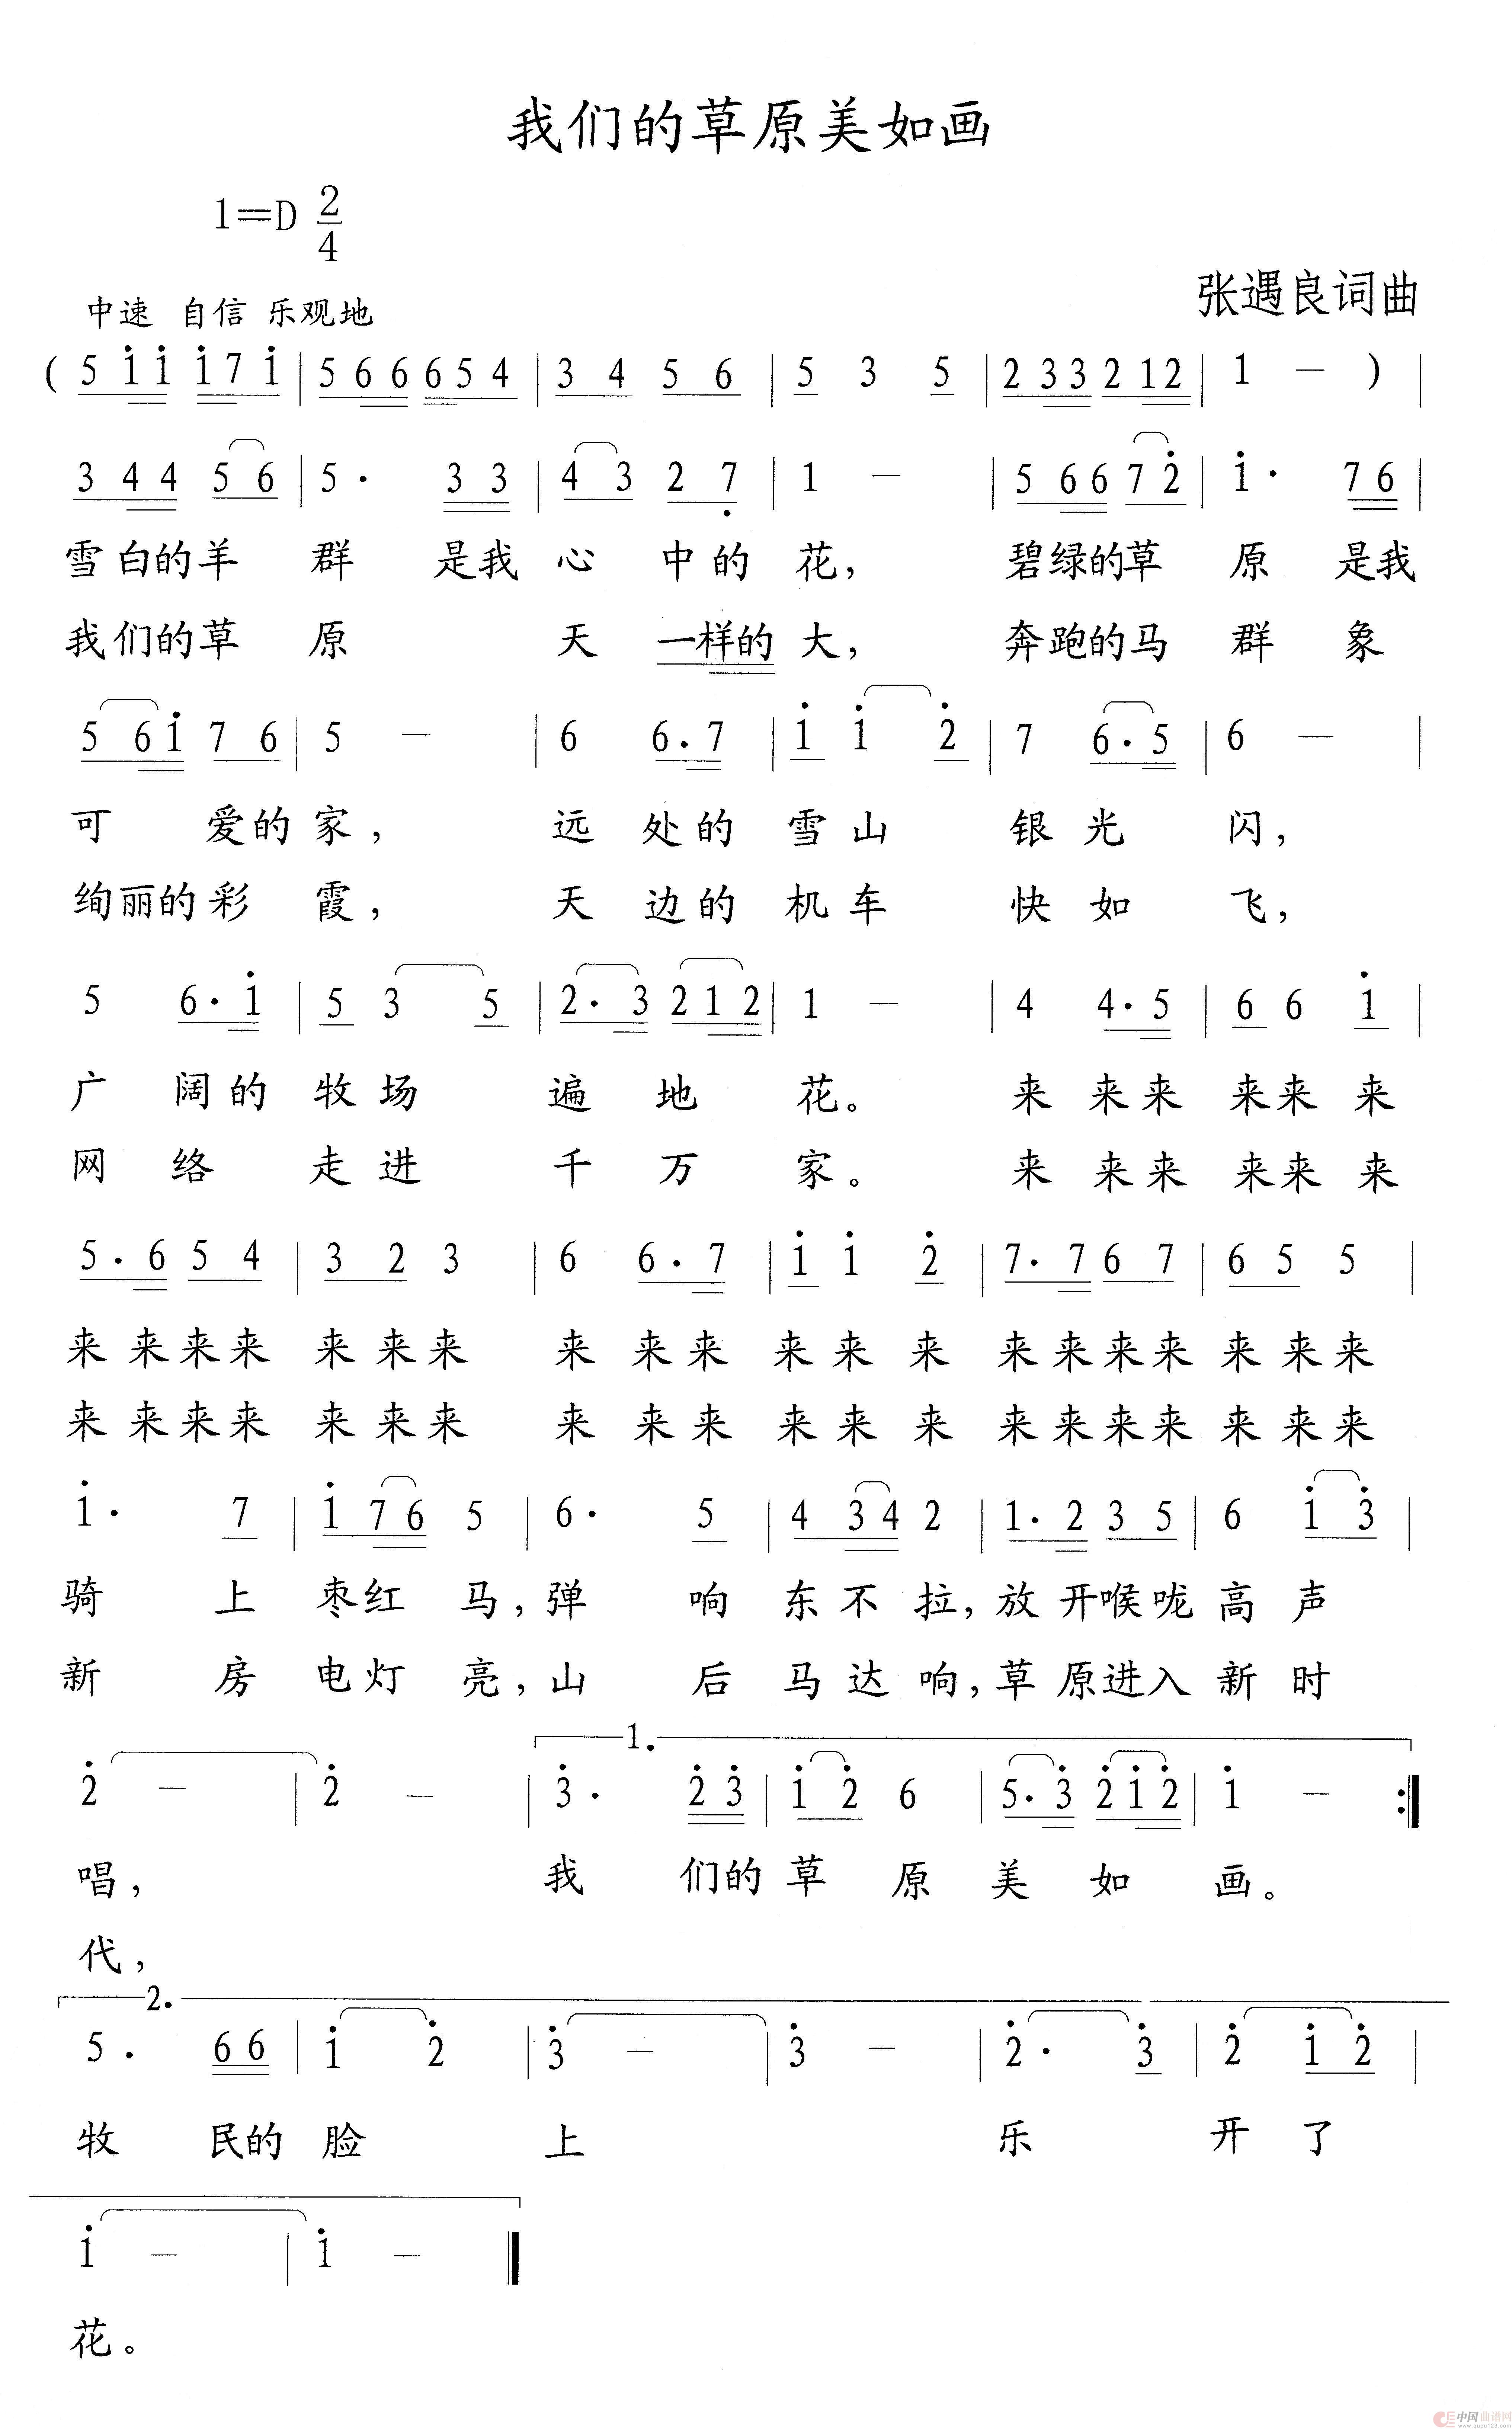 我们的草原美如画
1=D 2/4
张遇良词曲
中速 自信 乐观地
( 5 i i i 7 i | 5 6 6 6 5 4 | 3 4 5 6 | 5 3 5 | 2 3 3 2 1 2 | 1 — ) |
3 4 4 5 6 | 5 · 3 3 | 4 3 2 7̣ | 1 — | 5 6 6 7 2̇ | i · 7 6 |
雪白的羊 群 是我 心 中的 花, 碧绿的草 原 是我
我们的草 原 天 一样的 大, 奔跑的马 群 象
5 6 i 7 6 | 5 — | 6 6 · 7 | i i 2̇ | 7 6 · 5 | 6 — |
可 爱的 家, 远 处的 雪山 银光 闪,
绚丽的彩 霞, 天 边的 机车 快如 飞,
5 6 · i | 5 3 5 | 2 · 3 2 1 2 | 1 — | 4 4 · 5 | 6 6 i |
广 阔的 牧场 遍 地 花。 来 来来 来来 来
网 络 走进 千 万 家。 来 来来 来来 来
5 · 6 5 4 | 3 2 3 | 6 6 · 7 | i i 2̇ | 7 · 7 6 7 | 6 5 5 |
来 来来来 来 来来 来 来来 来 来 来 来来来来 来 来来
来 来来来 来 来来 来 来来 来 来 来 来来来来 来 来来
i · 7 | i 7 6 5 | 6 · 5 | 4 3 4 2 | 1 · 2 3 5 | 6 i 3̇ |
骑 上 枣红 马, 弹 响 东不 拉, 放开喉咙 高 声
新 房 电灯 亮, 山 后 马达 响, 草原进入 新 时
1.
2̇ — | 2̇ — | 3̇ · 2̇ 3̇ | i 2̇ 6 | 5 · 3̇ 2̇ i 2̇ | i — :|
唱, 我 们的 草 原 美 如 画。
代,
2.
5 · 6 6 | i 2̇ | 3̇ — | 3̇ — | 2̇ · 3̇ | 2̇ i 2̇ |
牧 民的 脸 上 乐 开 了
i — | i — ‖
花。
中国曲谱网
www.qupu123.com